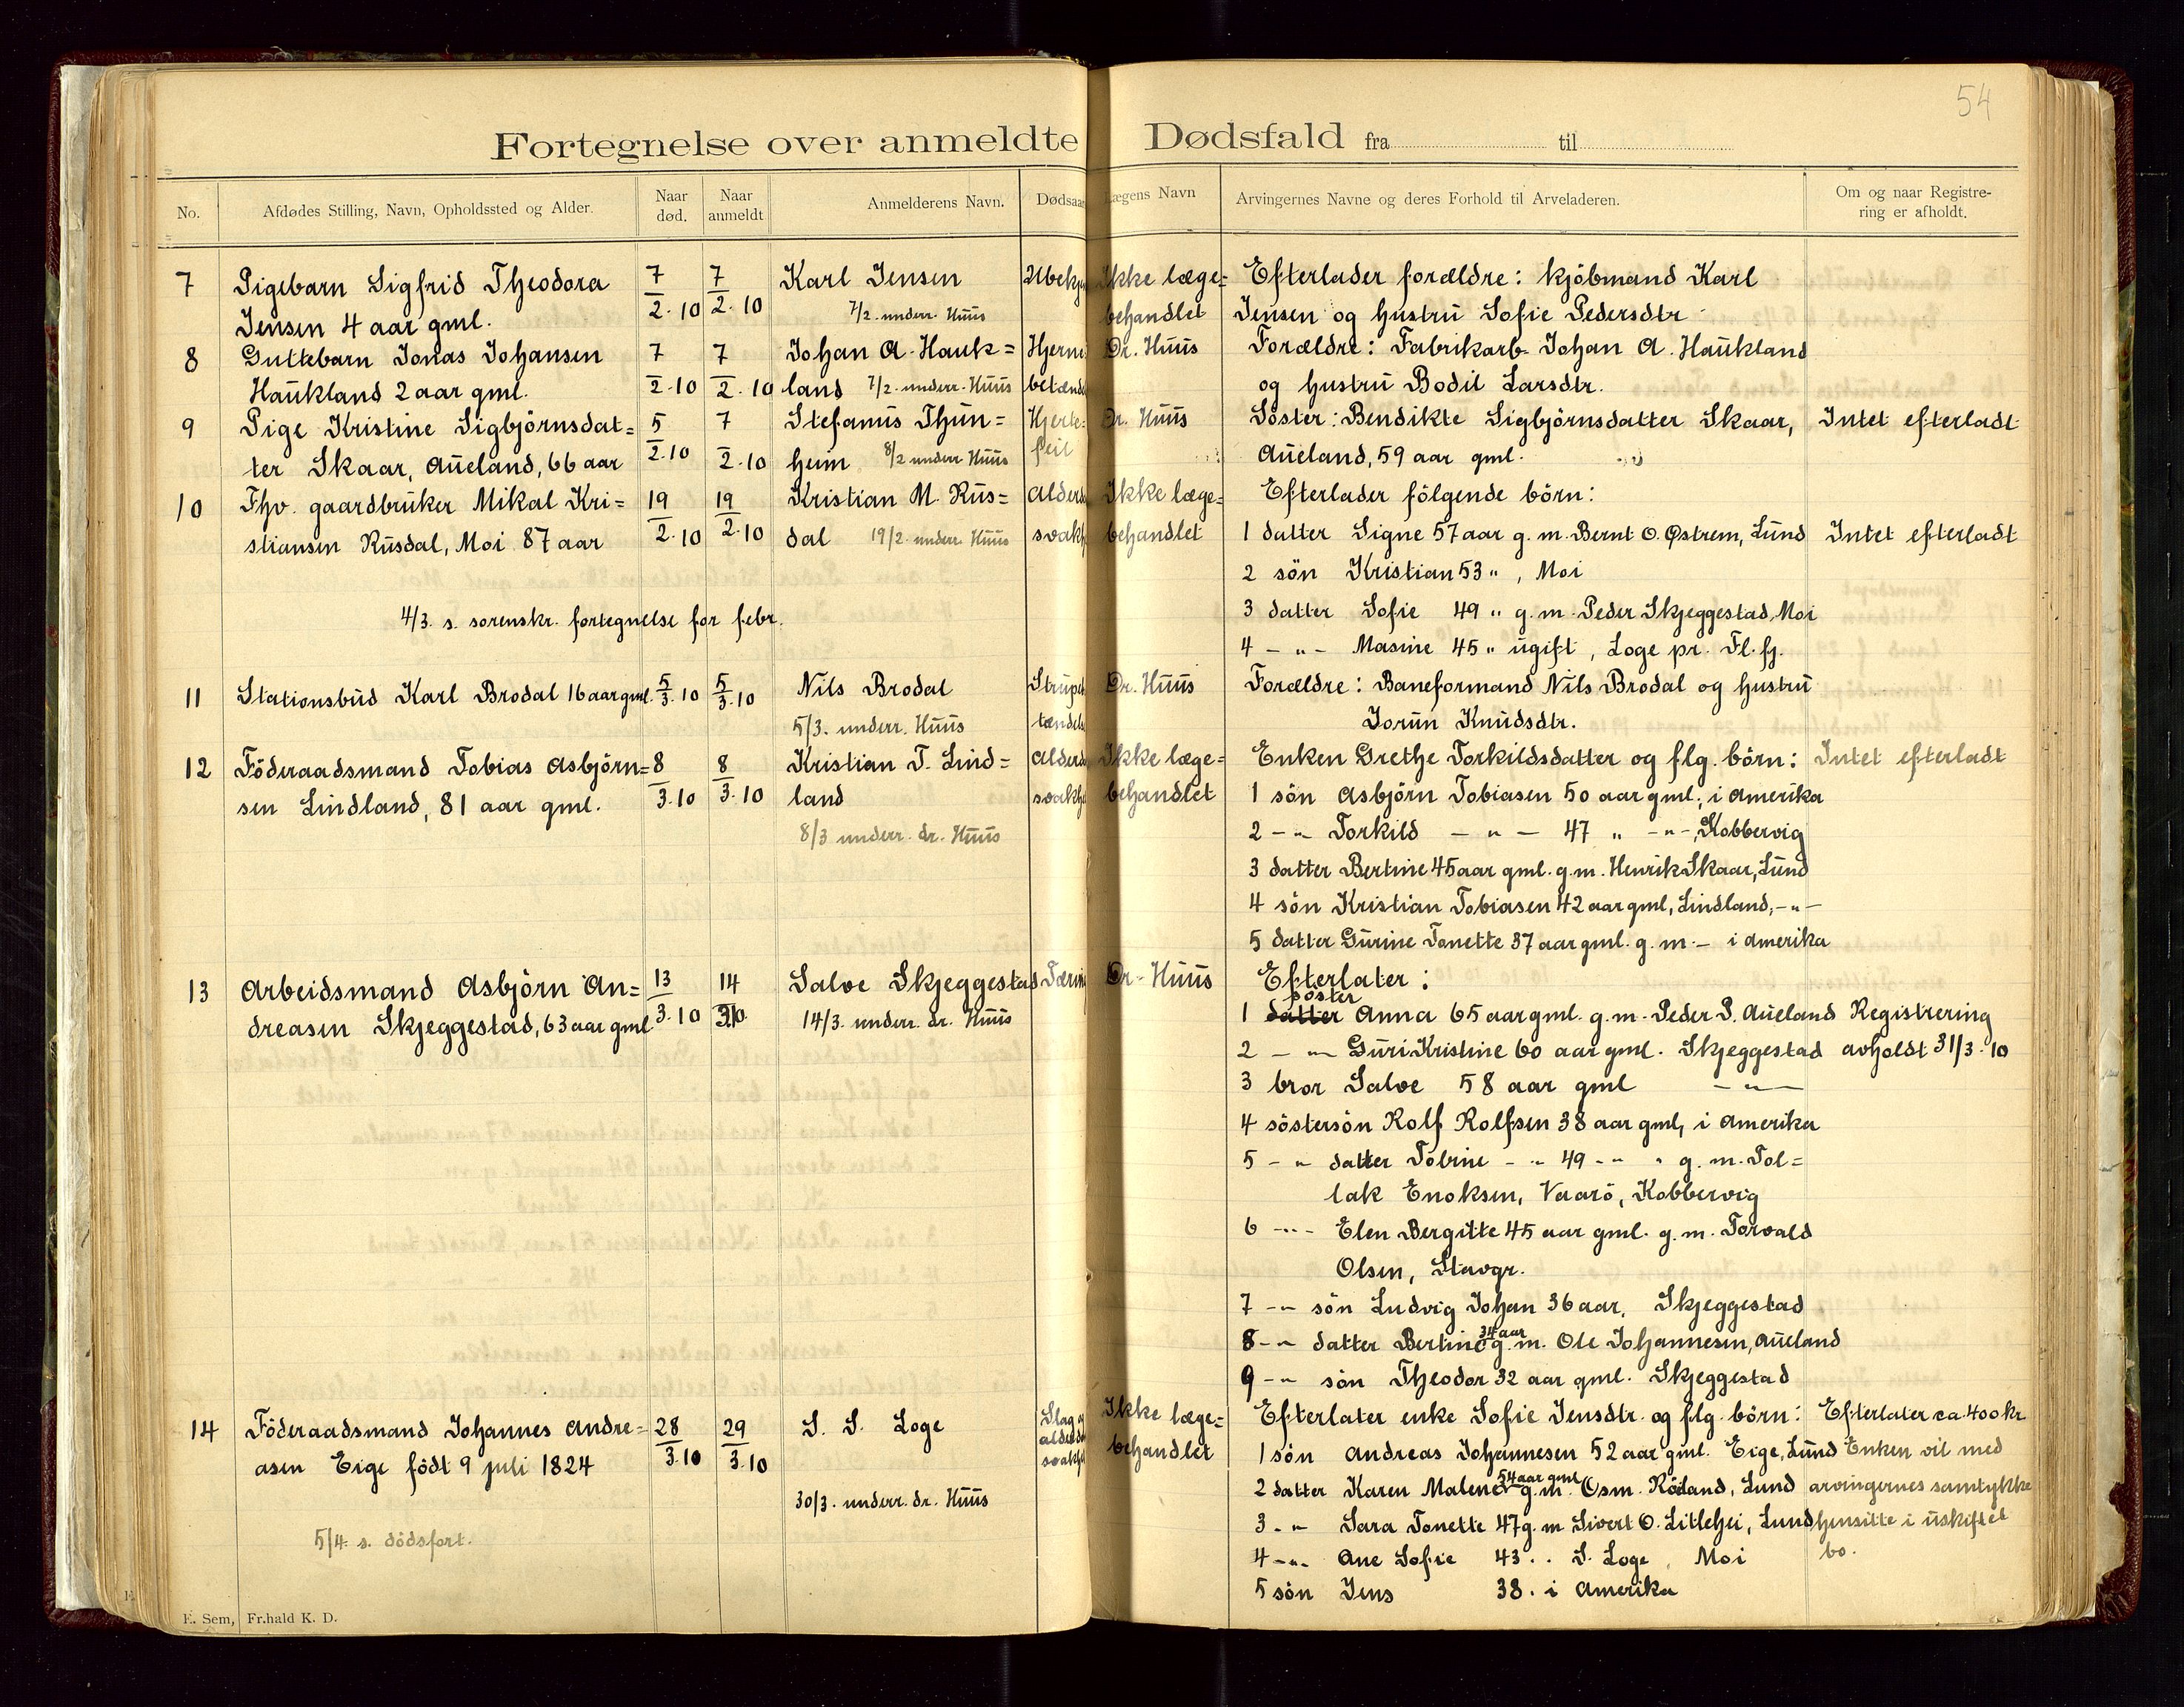 54
Fortegnelse over anmeldte Dødsfald fra til
No. Afdødes Stilling, Navn, Opholdssted og Alder. Naar død. Naar anmeldt Anmelderens Navn. Dødsaar Lægens Navn Arvingernes Navne og deres Forhold til Arveladeren. Om og naar Registrering er afholdt.
7 Pigebarn Sigfrid Theodora 7/2.10 7/2.10 Karl Jensen Ubekj Ikke læge= Efterlader forældre: kjöbmand Karl
Jensen 4 aar gml. 7/2. underr. Huus behandlet Jensen og hustru Sofie Pedersdtr
8 Guttebarn Jonas Johansen 7/2.10 7/2.10 Johan A. Hauk= Hjerne Dr. Huus Forældre: Fabrikarb. Johan A. Haukland
Haukland 2 aar gml. land 7/2. underr. Huus betænde og hustru Bodil Larsdtr.
9 Pige Kristine Sigbjörnsdat= 5/2.10 7/2.10 Stefanus Thun= Hjerte= Dr. Huus Söster: Bendikte Sigbjörnsdatter Skaar, Intet efterladt
ter Skaar, Aueland, 66 aar heim 8/2 underr. Huus feil Aueland, 59 aar gml.
10 Fhv. gaardbruker Mikal Kri= 19/2.10 19/2.10 Kristian M. Rus= Alderd Ikke læge= Efterlader fölgende börn:
stiansen Rusdal, Moi 87 aar dal 19/2. underr. Huus svakh behandlet 1 datter Signe 57 aar g. m. Bernt O. Østrem, Lund Intet efterladt
2 sön Kristian 53 " , Moi
4/3. s. sorenskr. fortegnelse for febr. 3 datter Sofie 49 " g. m. Peder Skjeggestad, Moi
4 - " - Masine 45 " ugift, Loge pr. Fl.fj.
11 Stationsbud Karl Brodal 16 aar gml. 5/3.10 5/3.10 Nils Brodal Strupe Dr. Huus Forældre: Baneformand Nils Brodal og hustru
5/3. underr. Huus tændels Jorun Knudsdtr.
12 Föderaadsmand Tobias Asbjörn= 8/3.10 8/3.10 Kristian T. Lind= Alderd Ikke læge= Enken Grethe Torkildsdatter og flg. börn: Intet efterladt
sen Lindland, 81 aar gml. land svakhe behandlet 1 sön Asbjörn Tobiasen 50 aar gml., i Amerika
8/3 underr. dr. Huus 2 - " - Torkild - " - 47 " - " -, Kobbervig
3 datter Bertine 45 aar gml. g. m. Henrik Skaar, Lund
4 sön Kristian Tobiasen 42 aar gml, Lindland, - " -
5 datter Gurine Tonette 37 aar gml. g. m. - i Amerika
13 Arbeidsmand Asbjörn An= 13/3.10 14/3.10 Salve Skjeggestad Tæring Dr. Huus Efterlater:
söster
dreasen Skjeggestad, 63 aar gml. 14/3. underr. dr. Huus 1 datter Anna 65 aar gml. g. m. Peder P. Aueland Registrering
2 - " - Guri Kristine 60 aar gml. Skjeggestad avholdt 31/3.10
3 bror Salve 58 aar gml - " -
4 söstersön Rolf Rolfsen 38 aar gml, i Amerika
5 - " datter Tobine - " 49 - " " g. m. Tol=
lak Enoksen, Vaarö, Kobbervig
6 - " - Elen Bergitte 45 aar gml. g. m. Torvald
Olsen, Stavgr.
7 - " sön Ludvig Johan 36 aar, Skjeggestad
34 aar
8 - " datter Bertine g. m. Ole Johannesen, Aueland
9 - " sön Theodor 32 aar gml. Skjeggestad
14 Föderaadsmand Johannes Andre= 28/3.10 29/3.10 S. S. Loge Slag og alderdo svakhe Ikke læge= Efterlater enke Sofie Jensdtr. og flg. börn: Efterlater ca 400 kr
asen Eige födt 9 juli 1824 behandlet 1 sön Andreas Johannesen 52 aar gml. Eige, Lund Enken vil med
54 aar gml
30/3. underr. dr. Huus 2 datter Karen Malene g. m. Osm. Röiland, Lund arvingernes samtykke
5/4. s. dödsfort. 3 - " Sara Tonette 47 g. m Sivert O. Litlehei, Lund hensitte i uskiftet
4 - " - Ane Sofie 43 . . S. Loge, Moi bo.
5 sön Jens 38 . i Amerika
E. Sem, Fr.hald K. D.